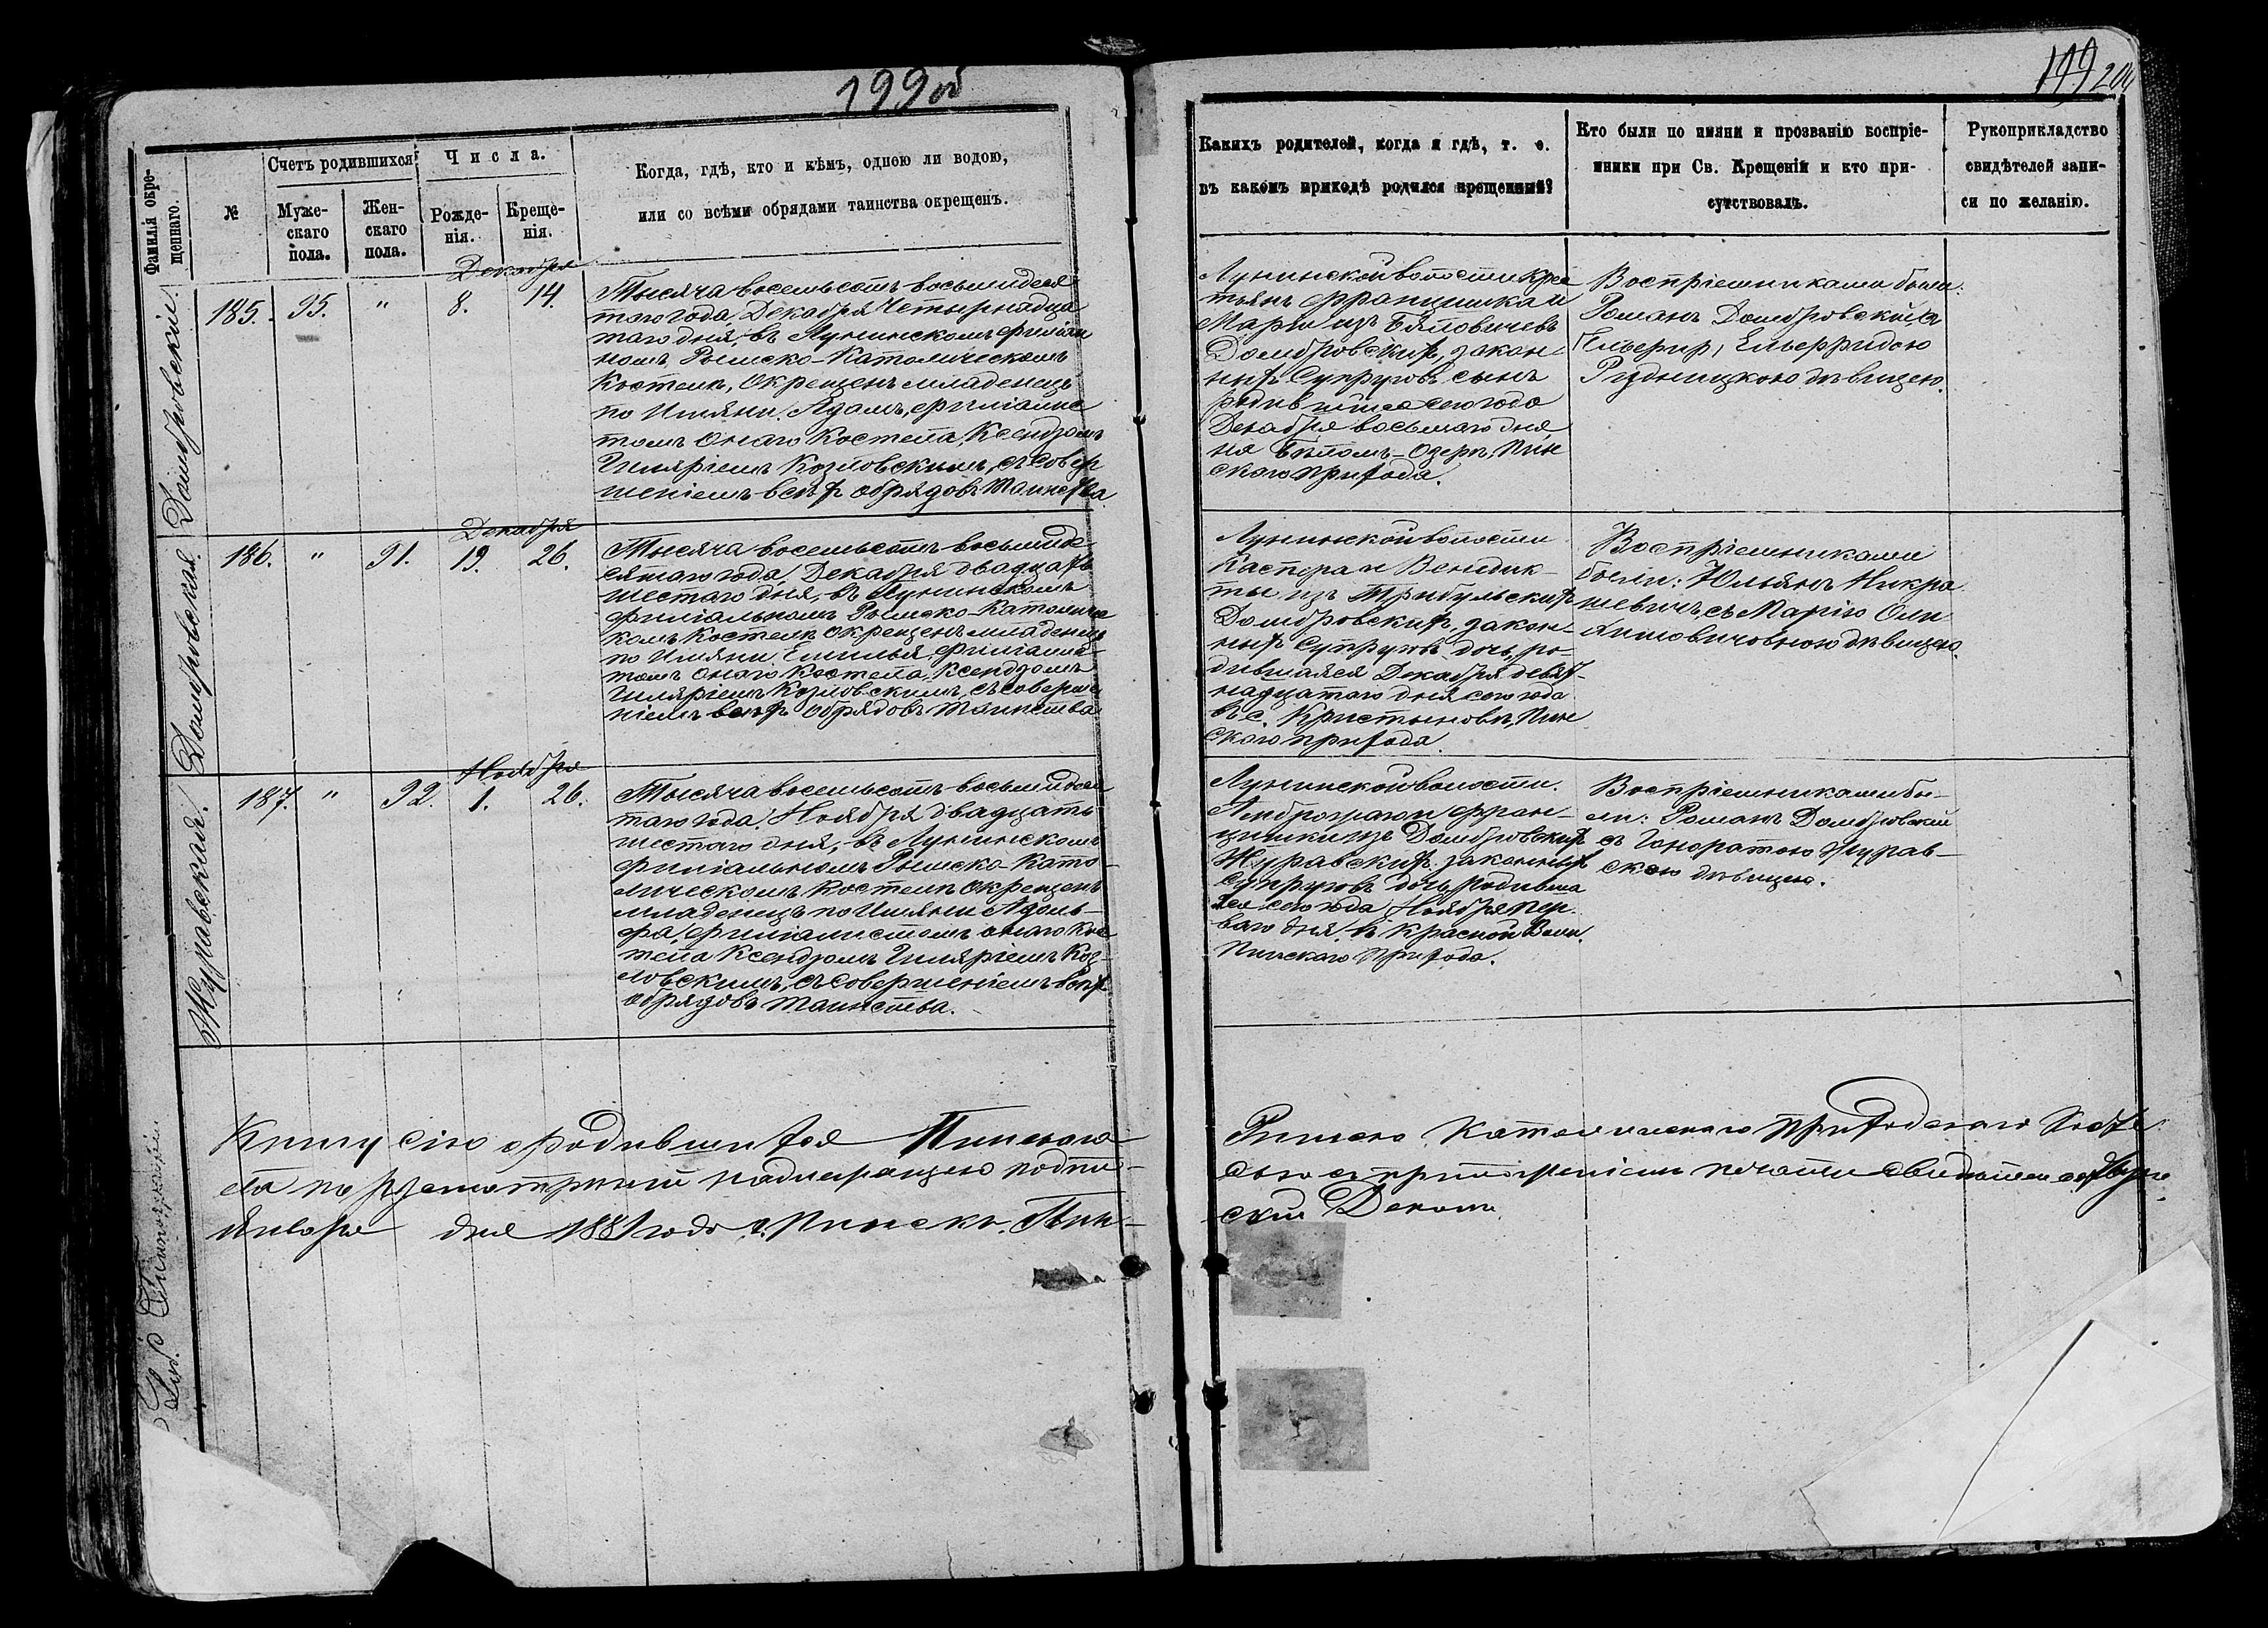 199об
199 200
Фамилія окре-
щеннаго.
№
Счетъ родившихся
Муже-
скаго
пола.
Жен-
скаго
пола.
Числа.
Рожде-
нія.
Креще-
нія.
Когда, гдѣ, кто и кѣмъ, одною ли водою,
или со всѣми обрядами таинства окрещенъ.
Каких родителей, когда и гдѣ, т. е.
въ какомъ приходѣ родился крещенный?
Кто были по имяни и прозванію воспріе-
мники при Св. Крещеніи и кто при-
сутствовалъ.
Рукоприкладство
свидѣтелей запи-
си по желанію.
Домбровскій.
185. 95. " 8. 14.
Декабря
Тысяча восемьсотъ восьмидеся
таго года, Декабря Четырнадца
таго дня, въ Лунинскомъ филіаль
номъ Римско-Католическомъ
Костелѣ, окрещенъ младенецъ
по Имяни Адамъ, филіалис
томъ онаго Костела, Ксендзомъ
Гиляріемъ Козловскимъ, съ совер
шеніемъ всѣхъ обрядовъ таинства.
Лунинской волости Крес
тьянъ Францишка и
Маріи изъ Бѣловичевъ
Домбровскихъ, закон-
ныхъ Супруговъ сынъ
родившійся сего года
Декабря восьмаго дня,
на Бѣломъ-Озерѣ, Пин
скаго прихода.
Воспріемниками были:
Романъ Домбровскій, съ
Ельфридою
дѣвицею.
Домбровская.
186. " 91. 19. 26.
Декабря
Тысяча восемьсотъ восьмиде
сятаго года, Декабря двадцать
шестаго дня, въ Лунинскомъ
филіальномъ Римско-Католичес
комъ Костелѣ окрещенъ младенецъ
по Имяни Емилья, филіалис-
томъ онаго Костела, Ксендзомъ
Гиляріемъ Козловскимъ, съ соверше
ніемъ всѣхъ обрядовъ таинства
Лунинской волости
Каспера и Бенедик-
ты изъ Трибульскихъ
Домбровскихъ, закон-
ныхъ Супруговъ дочь, ро-
дившаяся Декабря девят-
надцатаго дня сего года
въ с. Кристыновѣ, Пин
скаго прихода.
Воспріемниками
были: Юльянъ Никра
шевичъ, съ Маріею Оли
дѣвицею.
Журавская.
187. " 92. 1. 26.
Ноября
Тысяча восемьсотъ восьмидеся
таго года, Ноября двадцать
шестаго дня, въ Лунинскомъ
филіальномъ Римско-Като-
лическомъ Костелѣ окрещенъ
младенецъ по Имяни Адоль-
фа, филіалистомъ онаго Кос
тела Ксендзомъ Гиляріемъ Коз-
ловскимъ, съ совершеніемъ всѣхъ
обрядовъ таинства.
Лунинской волости.
Амброзія и Фран-
цишки изъ Домбровскихъ
Журавскихъ законныхъ
Супруговъ дочь, родивша
яся сего года Ноября пер-
ваго дня, въ Красной Воли,
Пинскаго прихода.
Воспріемниками бы-
ли: Романъ Домбровскій
съ Гоноратою Журав-
скою дѣвицею.
Книгу сію о родившихся Пинскаго
Римско Католическаго Приходскаго Косте
ла по разсмотрѣнію надлежащею подпи-
сью съ приложеніемъ печати
Января дня 1881 года г. Пинскъ. Пин-
скій Деканъ